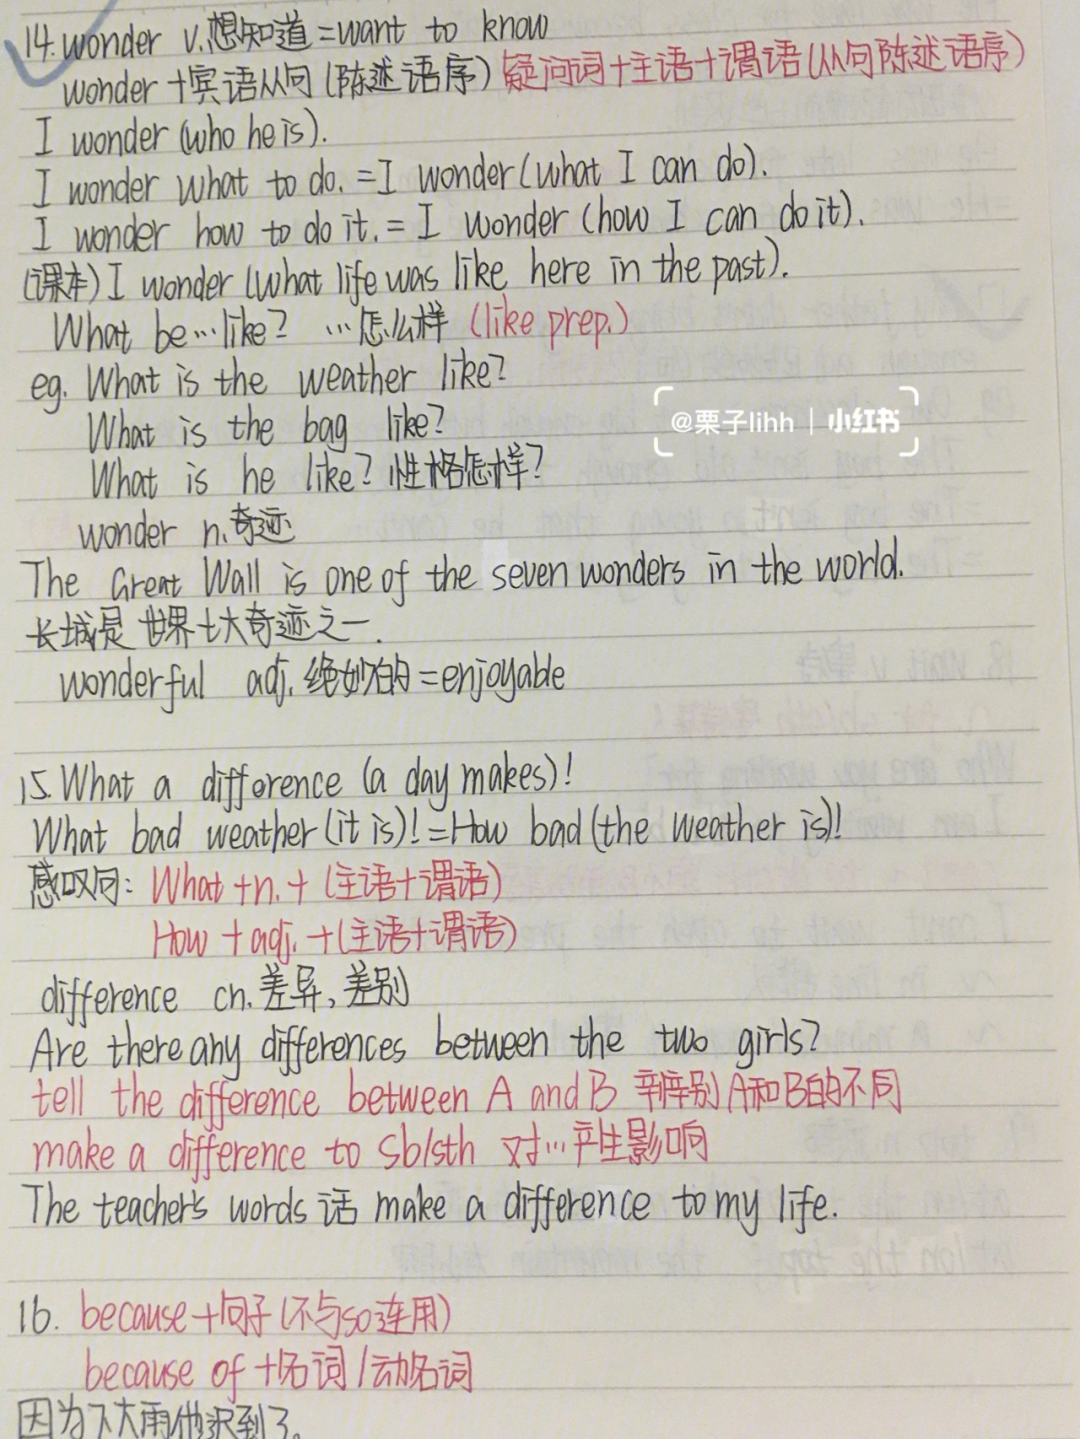 14. wonder v.想知道=want to know
wonder+宾语从句(陈述语序) 疑问词+主语+谓语(从句陈述语序)
I wonder (who he is).
I wonder what to do. = I wonder (what I can do).
I wonder how to do it. = I wonder (how I can do it).
(课本) I wonder (what life was like here in the past).
What be…like? …怎么样 (like prep.)
eg. What is the weather like?
What is the bag like?
@栗子lihh | 小红书
What is he like? 性格怎样?
wonder n.奇迹
The Great Wall is one of the seven wonders in the world.
长城是世界七大奇迹之一.
wonderful adj. 绝妙的=enjoyable
15. What a difference (a day makes)!
What bad weather (it is)! = How bad (the weather is)!
感叹句: What+n.+(主语+谓语)
How+adj.+(主语+谓语)
difference cn. 差异,差别
Are there any differences between the two girls?
tell the difference between A and B 辨别A和B的不同
make a difference to sb/sth 对…产生影响
The teacher's words 话 make a difference to my life.
16. because+句子(不与so连用)
because of+名词/动名词
因为下大雨他迟到了。